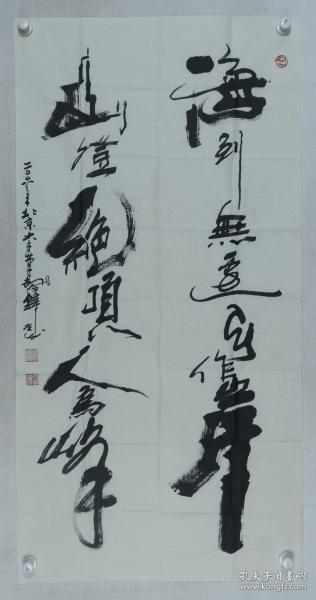 海到無邊天作岸
山登絕頂人為峰
二〇〇六年北京
孔夫子旧书网
www.kongfz.com